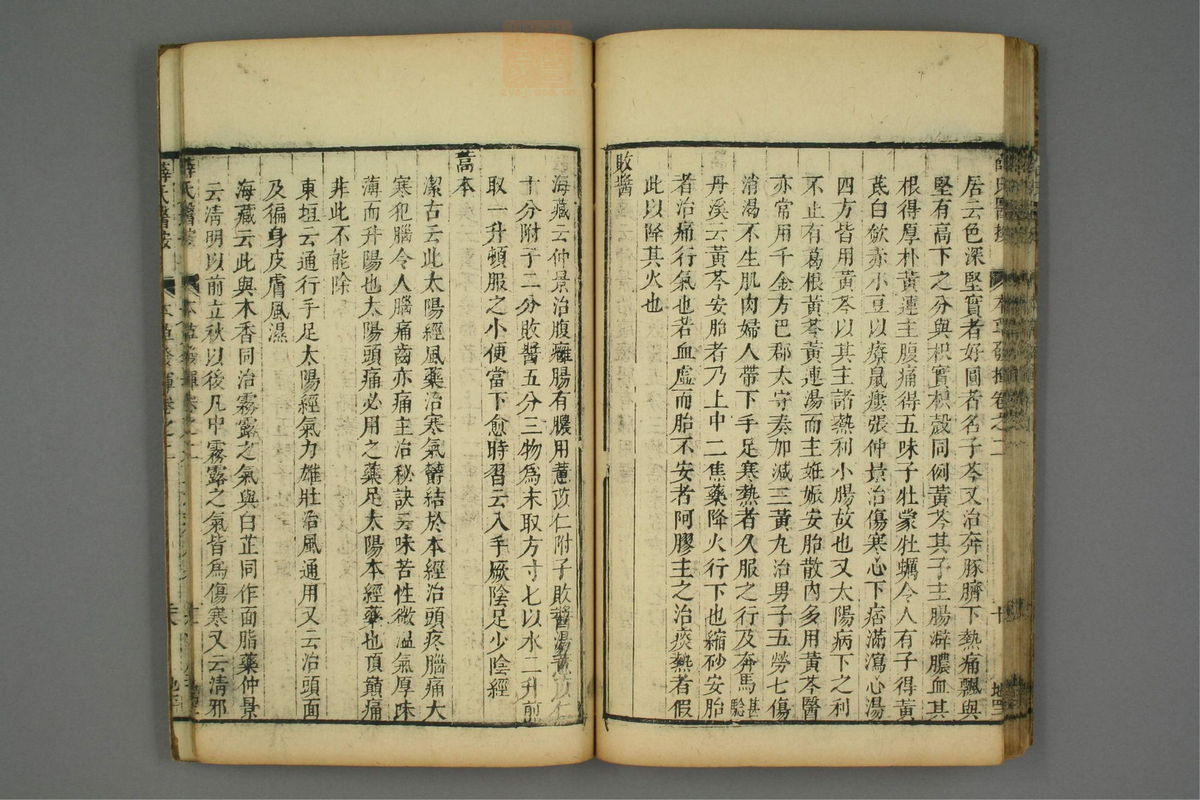 薛氏醫按 本草發揮卷之二 十 地四
居云色深堅實者好圓者名子芩又治奔豚臍下熱痛飄與
堅有高下之分與枳實枳殼同例黃芩其子主腸澼膿血其
根得厚朴黃連主腹痛得五味子牡蒙牡蠣令人有子得黃
芪白斂赤小豆以療鼠瘻張仲景治傷寒心下痞滿瀉心湯
四方皆用黃芩以其主諸熱利小腸故也又太陽病下之利
不止有葛根黃芩黃連湯而主姙娠安胎散內多用黃芩醫
亦常用千金方巴郡太守奏加減三黃丸治男子五勞七傷
消渴不生肌肉婦人帶下手足寒熱者久服之行及奔馬甚驗
丹溪云黃芩安胎者乃上中二焦藥降火行下也縮砂安胎
者治痛行氣也若血虛而胎不安者阿膠主之治痰熱者假
此以降其火也
敗醬
海藏云仲景治腹癰腸有膿用薏苡仁附子敗醬湯薏苡仁
十分附子二分敗醬五分三物爲末取方寸七以水二升煎
取一升頓服之小便當下愈時習云入手厥陰足少陰經
藁本
潔古云此太陽經風藥治寒氣鬱結於本經治頭疼腦痛大
寒犯腦令人腦痛齒亦痛主治秘訣云味苦性微溫氣厚味
薄而升陽也太陽頭痛必用之藥足太陽本經藥也頂巔痛
非此不能除
東垣云通行手足太陽經氣力雄壯治風通用又云治頭面
及徧身皮膚風濕
海藏云此與木香同治霧露之氣與白芷同作面脂藥仲景
云清明以前立秋以後凡中霧露之氣皆爲傷寒又云清邪
薛氏醫按 本草發揮卷之二